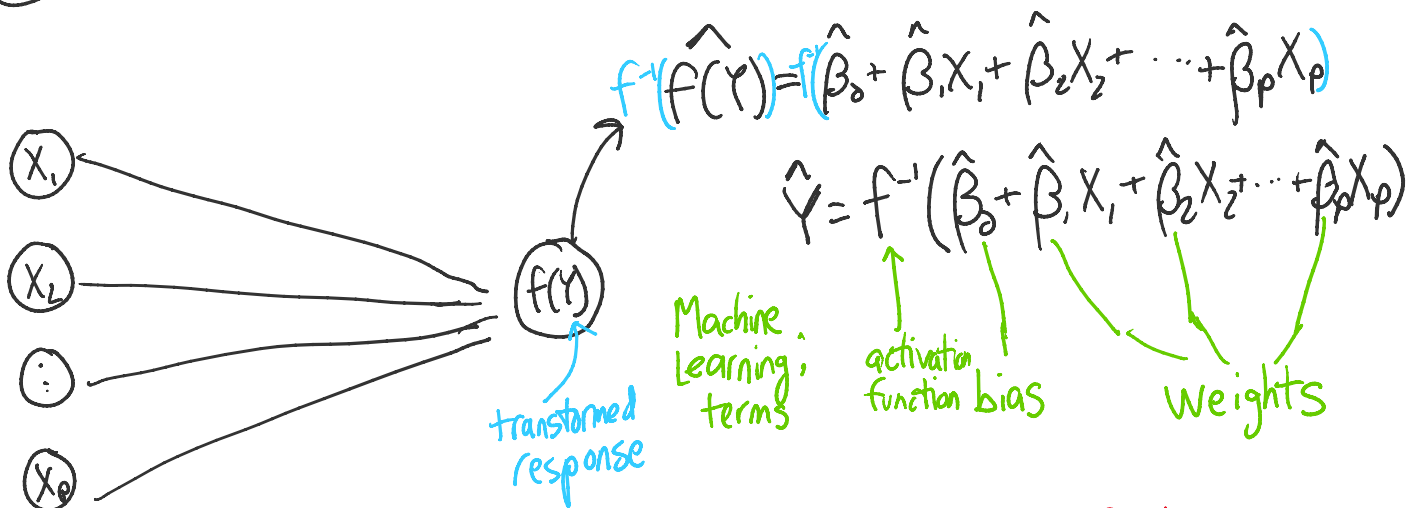 f⁻¹(f(Y)^) = f⁻¹(β̂₀ + β̂₁X₁ + β̂₂X₂ + ... + β̂ₚXₚ)
Ŷ = f⁻¹(β̂₀ + β̂₁X₁ + β̂₂X₂ + ... + β̂ₚXₚ)
X₁
X₂
:
Xₚ
f(Y)
transformed
response
Machine
Learning
terms
activation
function
bias
weights